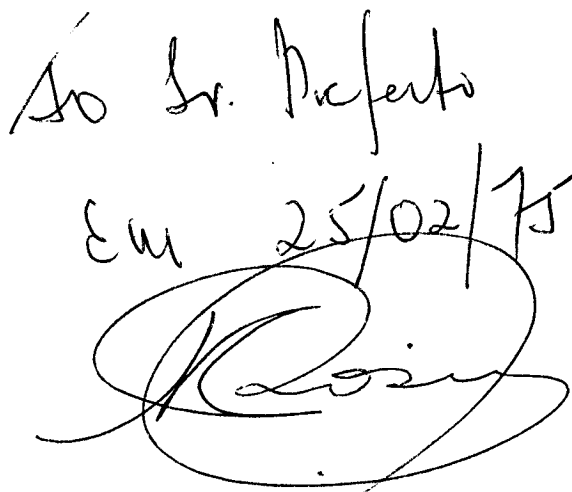 Ao Sr. Prefeito
Em 25/02/75